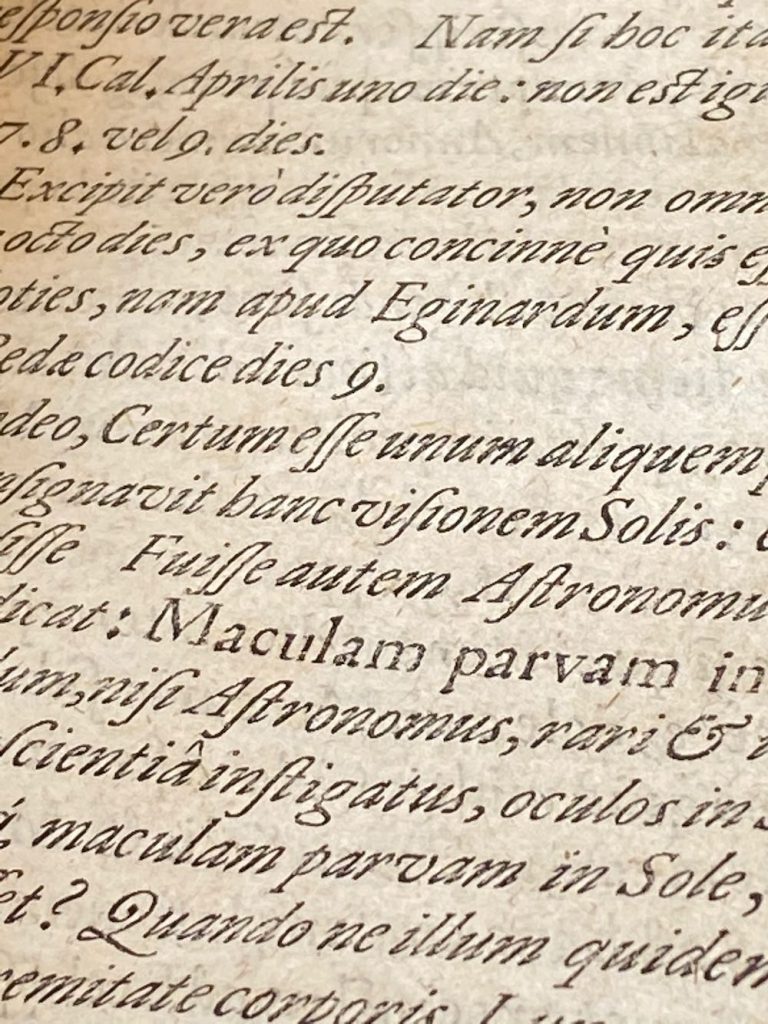 esponsio vera est. Nam si hoc ita
VI. Cal. Aprilis uno die: non est igi
7. 8. vel 9. dies.
Excipit verò disputator, non omn
octo dies, ex quo concinnè quis ess
oties, nam apud Eginardum, ess
Bedæ codice dies 9.
deo, Certum esse unum aliquem
nsignavit hanc visionem Solis:
sisse Fuisse autem Astronomu
dicat: Maculam parvam in
um, nisi Astronomus, rari &
scientiâ instigatus, oculos in S
maculam parvam in Sole,
et? Quando ne illum quidem
remitate corporis